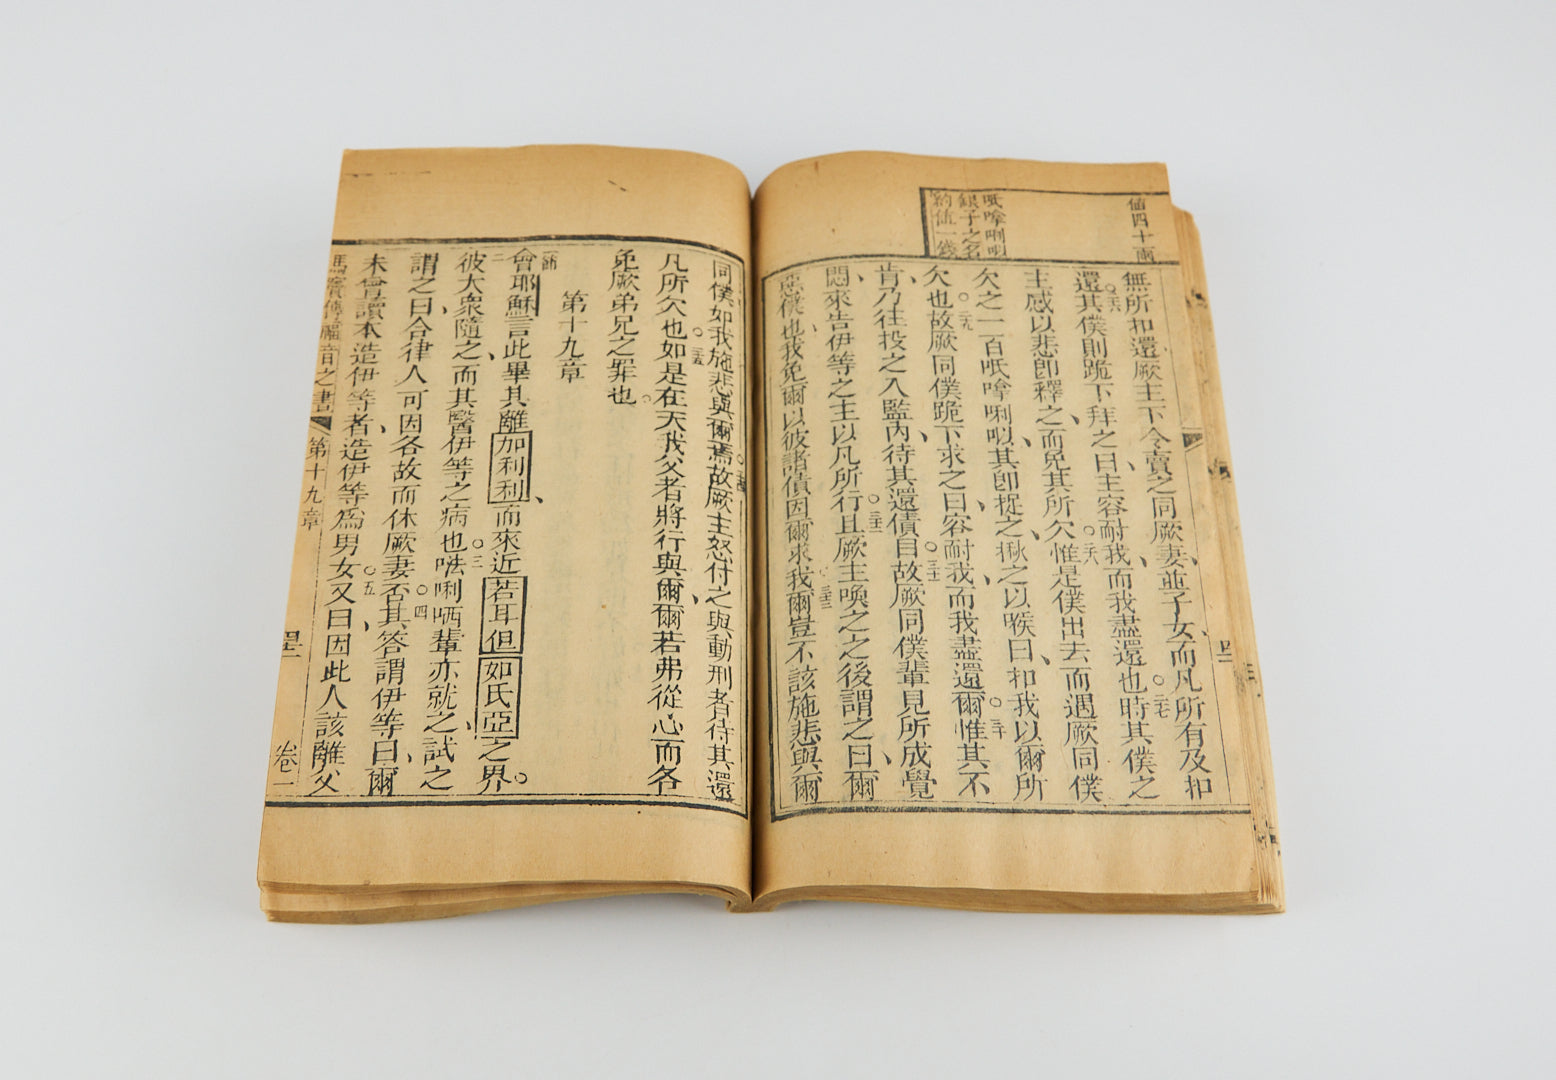 值四十兩
呧嗱唎吅
銀子之名
約值一錢
無所扣還厥主下令賣之同厥妻並子女而凡所有及扣
還○二六其僕則跪下拜之曰主容耐我而我盡還也○二七時其僕之
主感以悲卽釋之而免其所欠○二八惟是僕出去而遇厥同僕
欠之一百呧嗱唎吅其卽捉之揪之以喉曰扣我以爾所
欠也○二九故厥同僕跪下求之曰容耐我而我盡還爾○三十惟其不
肯乃往投之入監內待其還債○三十一故厥同僕輩見所成覺
悶來告伊等之主以凡所行○三十二且厥主喚之之後謂之曰爾
惡僕也我免爾以彼諸債因爾求我○三十三爾豈不該施悲與爾
同僕如我施悲與爾焉○三十四故厥主怒付之與動刑者待其還
凡所欠也○三十五如是在天我父者將行與爾爾若弗從心而各
免厥弟兄之罪也○
第十九章
一節會耶穌言此畢其離加利利而來近若耳但如氏亞之界○
二彼大衆隨之而其醫伊等之病也○三𠵽唎哂輩亦就之試之
謂之曰合律人可因各故而休厥妻否○四其答謂伊等曰爾
未曾讀本造伊等者造伊等爲男女○五又曰因此人該離父
馬竇傳福音之書 第十九章 卷一